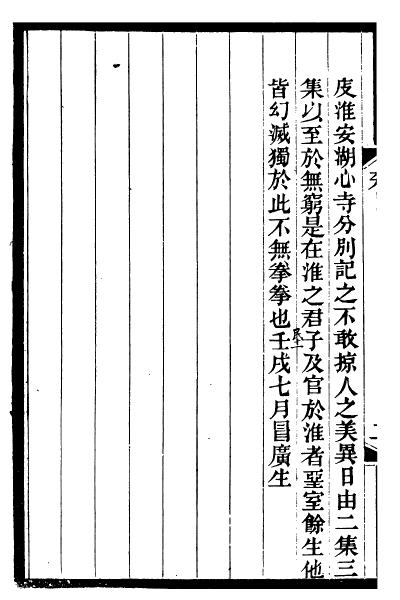 庋淮安湖心寺分別記之不敢掠人之美異日由二集三
集以至於無窮是在淮之君子及官於淮者堊室餘生他
皆幻滅獨於此不無拳拳也壬戌七月冒廣生